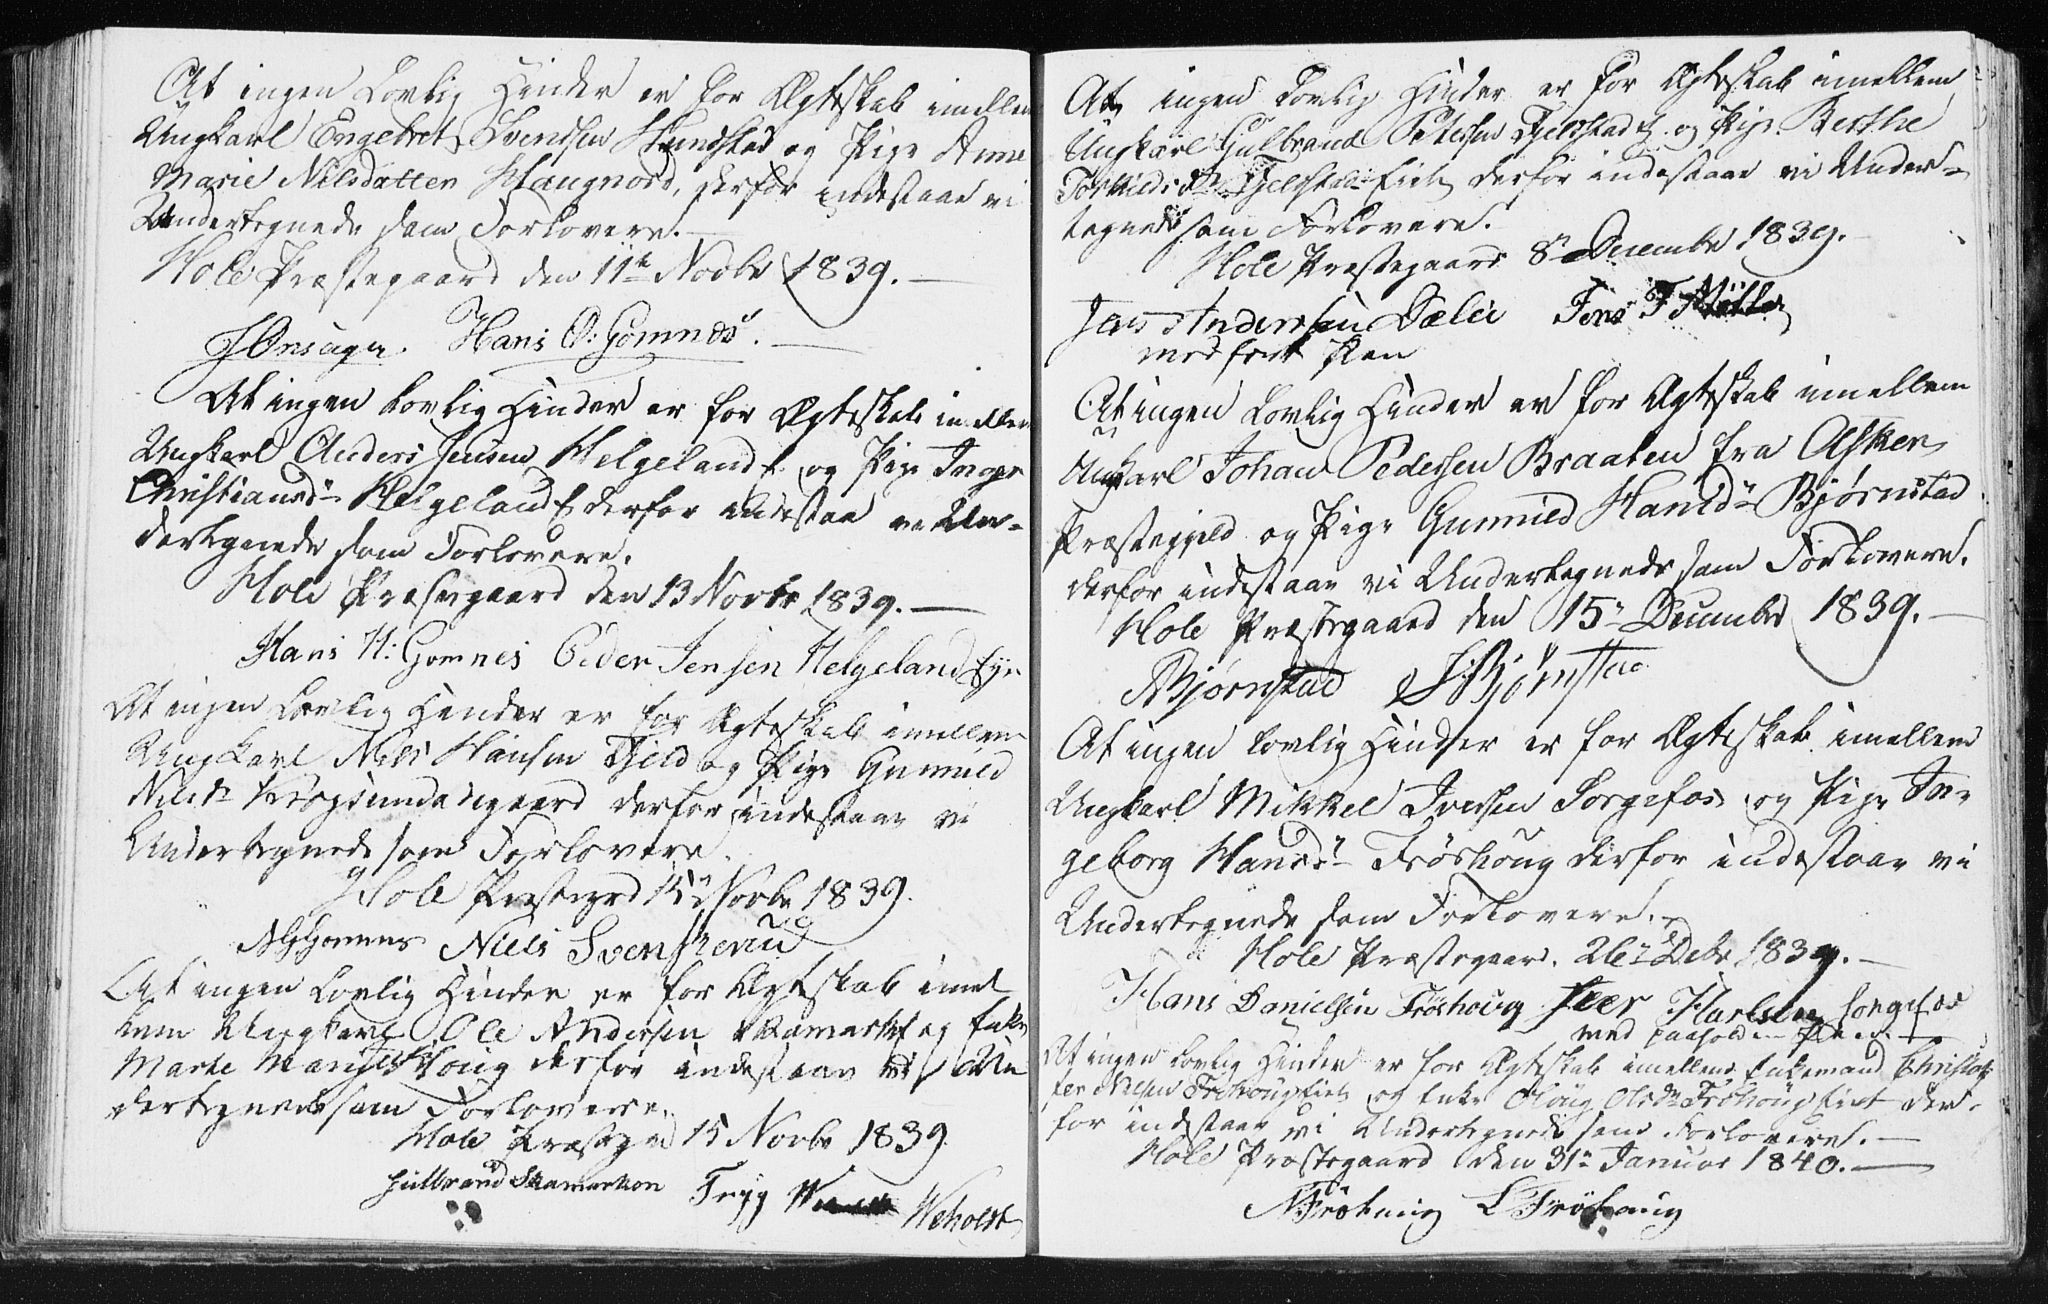 At ingen Lovlig Hinder er for Ægteskab imellem
Ungkarl Engebret Svendsen Hundstad og Pige Anne
Marie Nilsdatten Haugnord, derfor indestaae vi
Undertegnede som Forlovere.
Hole Præstegaard den 11te Novbr 1839.
JOnsager. Hans O: Gomnes.
At ingen Lovlig Hinder er for Ægteskab imellem
Ungkarl Anders Jensen Helgeland E. og Pige Inger
Christiansdr Helgeland E derfor indestaa vi Un-
dertegnede som Forlovere.
Hole Præstegaard den 13 Novbr 1839.
Hans H: Gomnes Peder Jensen Helgeland Eje
At ingen Lovlig Hinder er for Ægteskab imellem
Ungkarl Niels Hansen Fjeld og Pige Gunnild
Nilsdr Krogsundsægaard derfor indestaae vi
Undertegnede som Forlovere
Hole Præstegrd 15 Novbr 1839.
NGGomnes Niels Svenskerud
At ingen Lovlig Hinder er for Ægteskab imel
lem Ungkarl Ole Andersen og Enke
Marte Houg derfor indestaae vi Un
dertegnede som Forlovere.
Hole Præstegrd 15 Novbr 1839
Gulbrand Skamarken Trÿg Weholdt
At ingen Lovlig Hinder er for Ægteskab imellem
Ungkarl Gulbrand Petersen Fjeldstad E. og Pige Berthe
Tormildsdr Fjeldstad Eiet, derfor indestaae vi Under-
tegnede som Forlovere.
Hole Præstegaard 8de December 1839.
Jens Andersen Dælie Fons F Møller
med ført Pen
At ingen Lovlig Hinder er for Ægteskab imellem
Ungkarl Johan Pedersen Braaten fra Asker
Præstegjeld og Pige Gunnild Hansdr Bjørnstad
derfor indestaae vi Undertegnede som Forlovere.
Hole Præstegaard den 15de December 1839.
Bjørnstad Bjørnstad
At ingen lovlig Hinder er for Ægteskab imellem
Ungkarl Mikkel Iversen Sorgefos og Pige In-
geborg Hansdr Frøshoug derfor indestaae vi
Undertegnede som Forlovere.
Hole Præstegaard. 26de Debr 1839.
Hans Danielsen Frøshoug Iver Karlsen Songefos
med paaholden Pen
At ingen Lovlig Hinder er for Ægteskab imellem Enkemand Christof-
fer Nilsen Frøhoug Eiet, og Enke Oloug Olsdr Frøhoug Eiet der-
for indestaae vi Undertegnede som Forlovere.
Hole Præstegaard den 31te Januar 1840.
NFrøhoug L Frøhaug